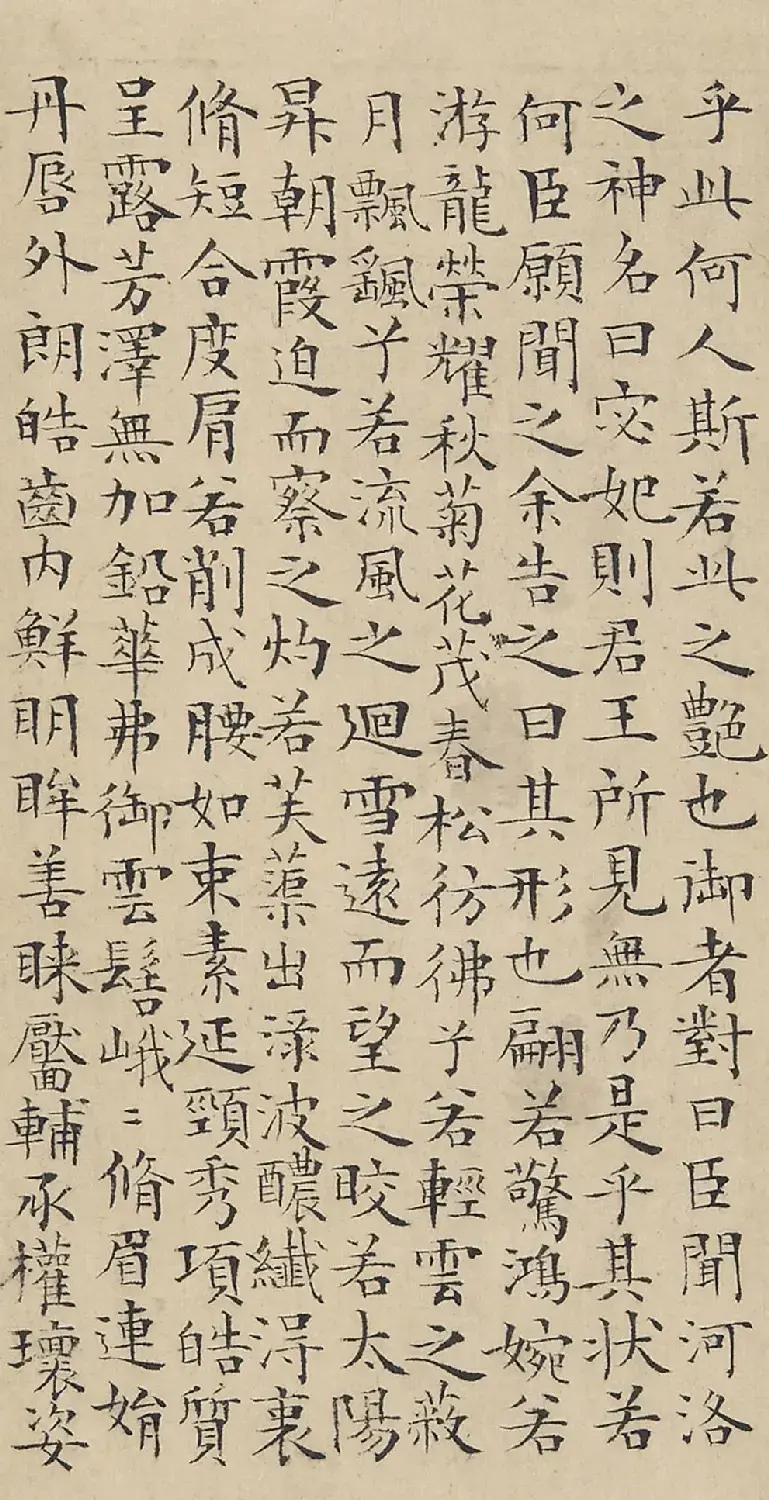 乎此何人斯若此之艷也御者對曰臣聞河洛
之神名曰宓妃則君王所見無乃是乎其状若
何臣願聞之余告之曰其形也翩若驚鴻婉若
游龍榮耀秋菊花茂春松彷彿兮若輕雲之蔽
月飄颻兮若流風之迴雪遠而望之晈若太陽
昇朝霞迫而察之灼若芙蕖出淥波醲纖得衷
脩短合度肩若削成腰如束素延頸秀項皓質
呈露芳澤無加鉛華弗御雲髻峨〻脩眉連娟
丹唇外朗皓齒内鮮明眸善睞靨輔承權瓌姿